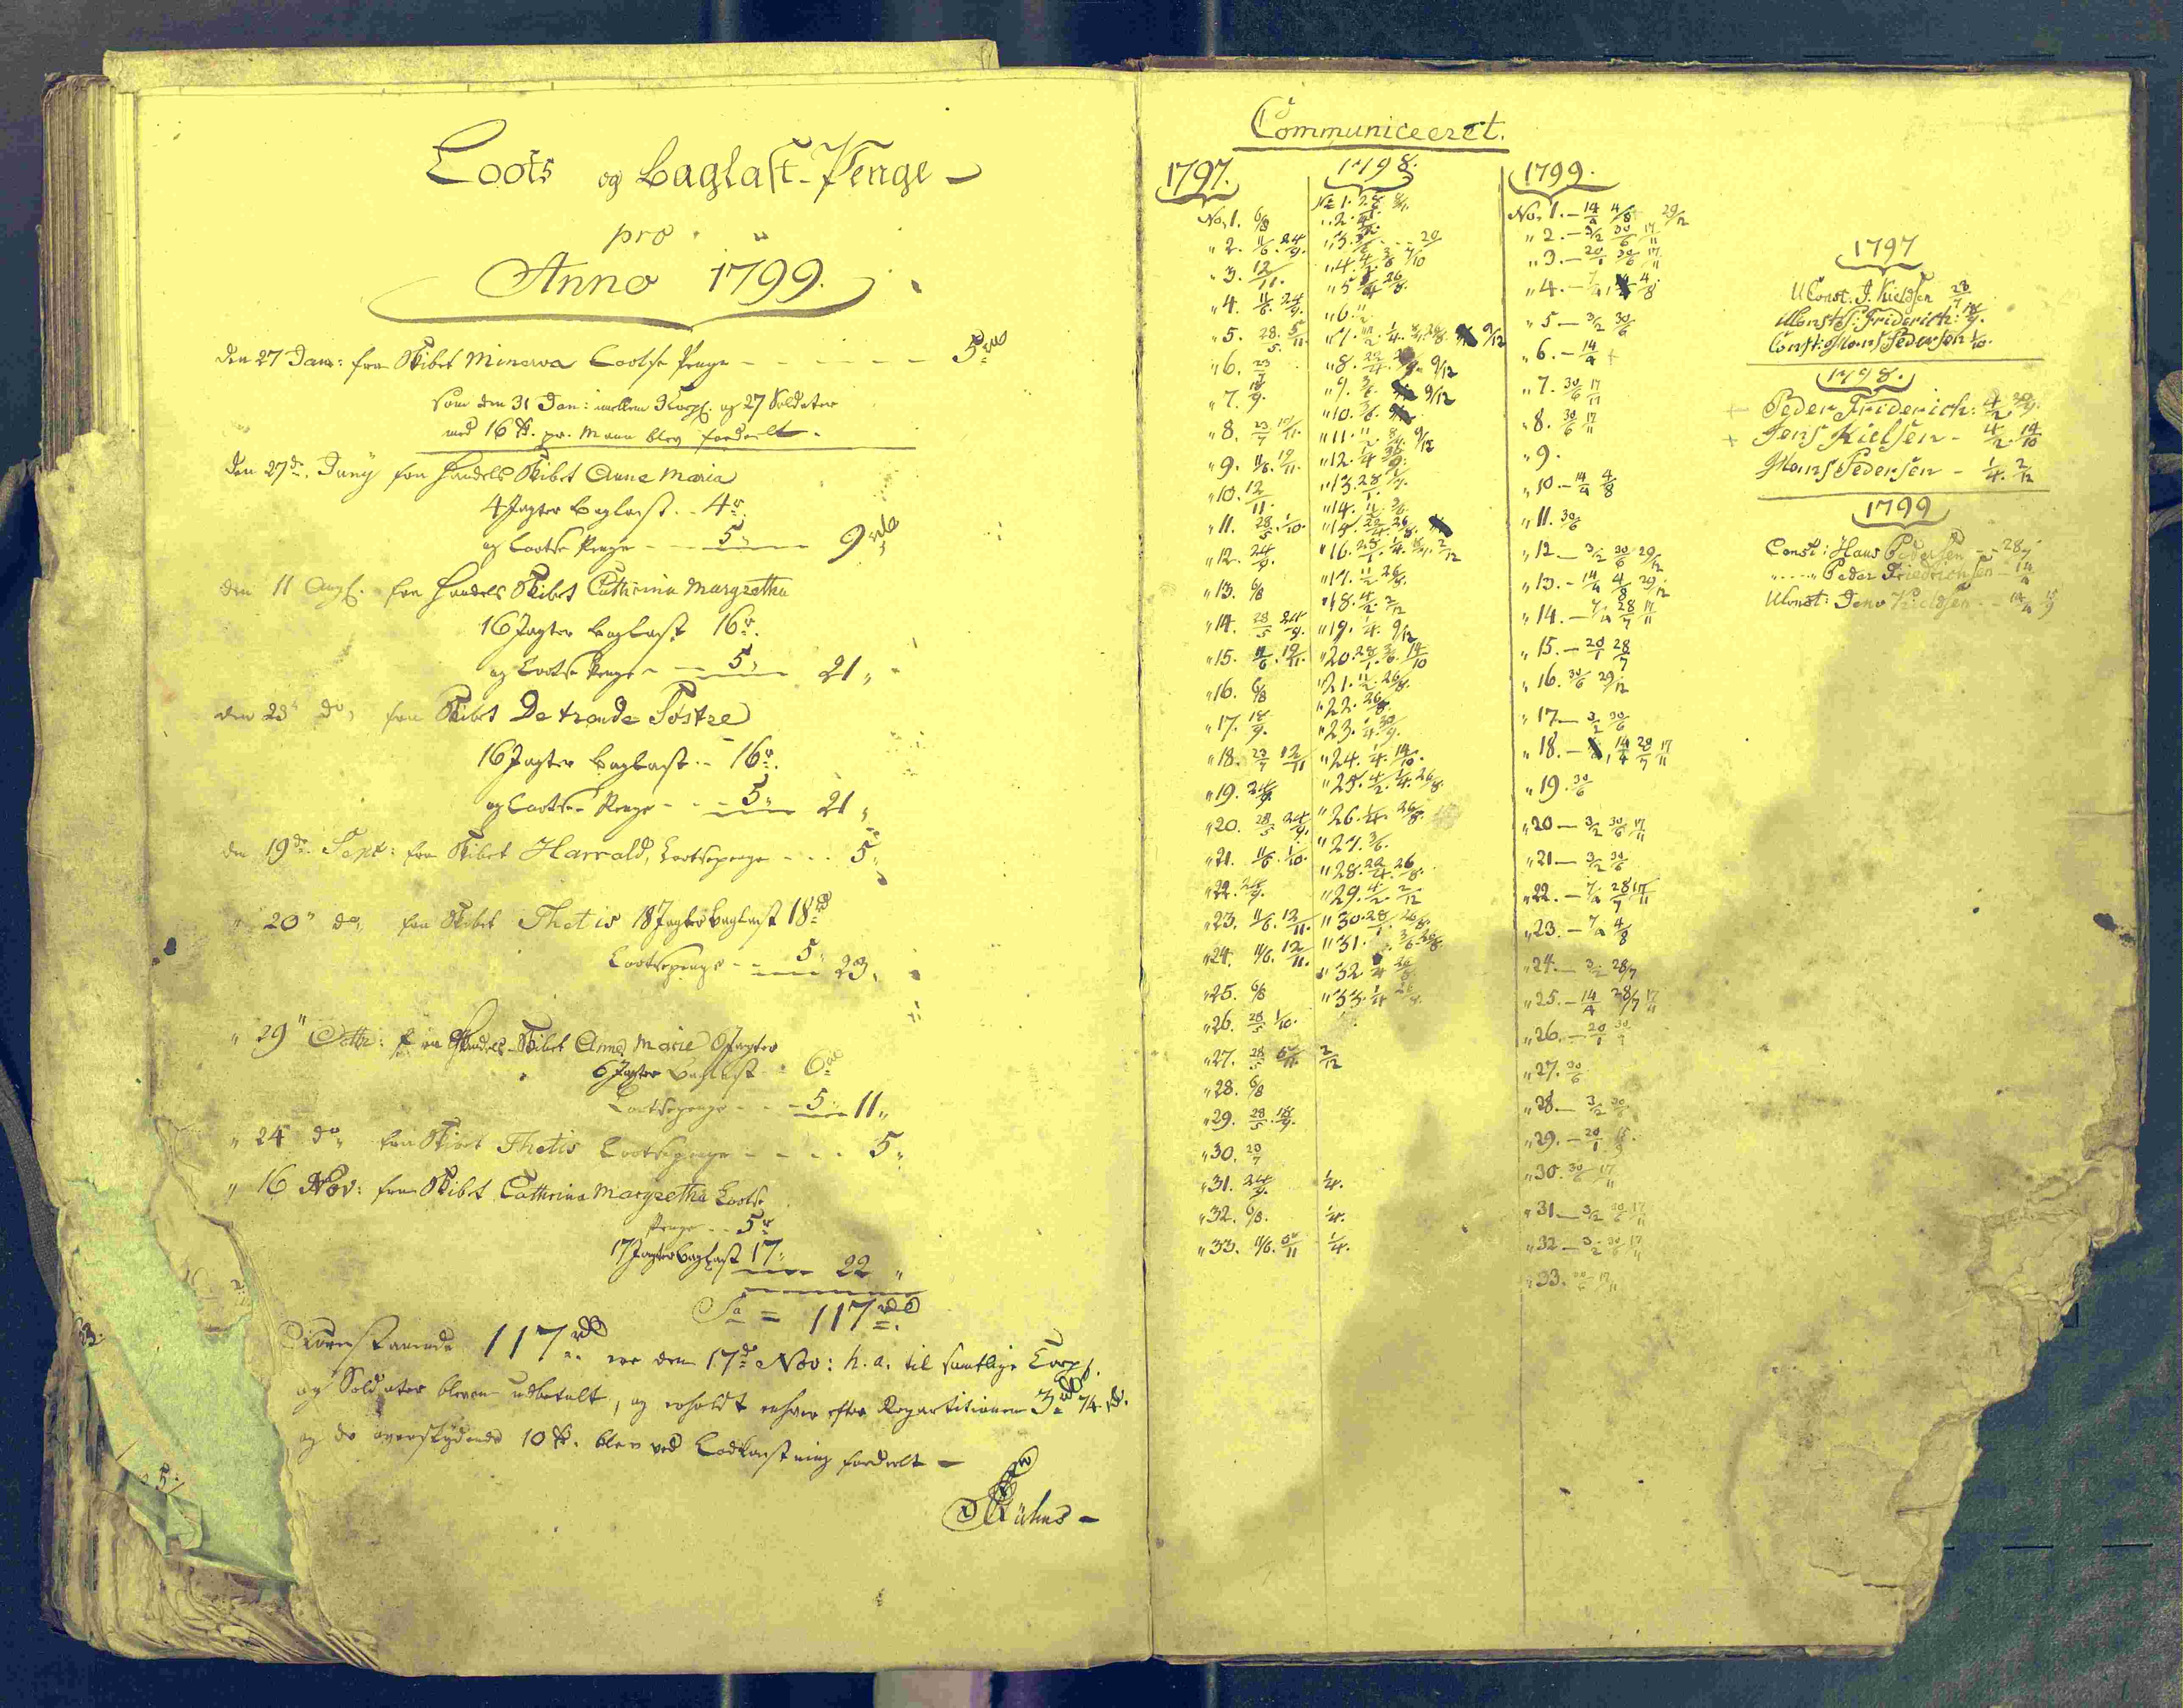 Loots og Baglast-Penge
pro
Anno 1799.
den 27 Jan: fra Skibet Minerva Lootse Penge - - - - - 5 rdr
som den 31 Jan: imellem 3 Corpl. og 27 Soldater
med 16 sk. pr. Mann blev fordeelt.
den 27de Juny fra Handels Skibet Anne Maria
4 Jagter Baglast - - 4 r.
og Lootse Penge - - - 5 " 9 rdr
den 11 Augs. fra Handels Skibet Cathrina Margretha
16 Jagter Baglast 16 r.
og Lootse Penge - - 5 " 21 "
den 23 do, fra Skibet De trende Søstre
16 Jagter Baglast - - 16 r.
og Lootse Penge - - - 5 " 21 "
den 19de Sept: fra Skibet Harrald, Lootsepenge - - - 5 "
" 20 " do, fra Skibet Thetis 18 Jagter Baglast 18 rd
Lootsepenge - - 5 " 23 "
" 29 " Octbr: fra Handels-Skibet Anne Marie 6 Jagter
6 Jagter Baglast - - 6 rd
Lootsepenge - - - 5 - 11 "
" 24 do " fra Skibet Thetis Lootsepenge - - - - 5 "
" 16 Nov: fra Skibet Cathrina Margretha Lootse
Penge - - 5 r
17 Jagter Baglast 17 "
22 "
Sa = 117 rd
Ovenstaaende 117 rdr er den 17de Nov: h. a. til samtlige Corpl.
og Soldater bleven udbetalt, og erholdt enhver efter Repartitionen 3 rdr 74 sk.
og de overskydende 10 sk. blev ved Lodkastning fordeelt -
Communiceeret.
1797. 1798. 1799.
No. 1. 6/8
" 2. 11/6. 24/9.
" 3. 12/11.
" 4. 11/6. 24/9.
" 5. 28/5. 5/11.
" 6. 23/7
" 7. 18/9.
" 8. 23/7 12/11.
" 9. 11/6. 12/11.
" 10. 12/11.
" 11. 28/5. 1/10.
" 12. 24/9.
" 13. 6/8
" 14. 28/5 24/9.
" 15. 11/6. 12/11.
" 16. 6/8
" 17. 18/9.
" 18. 23/7 12/11
" 19. 24/9.
" 20. 28/5 24/9.
" 21. 11/6. 1/10.
" 22. 24/9.
" 23. 11/6. 12/11.
" 24. 11/6. 12/11.
" 25. 6/8
" 26. 28/5 1/10.
" 27. 28/5 5/11. 2/12
" 28. 6/8
" 29. 28/5. 18/9.
" 30. 20/7
" 31. 24/9. 1/4.
" 32. 6/8. 1/4.
" 33. 11/6. 5/11 1/4.
" 6. 11/2
" 12. 1/4
" 17. 11/2 26/8.
" 18. 4/2. 2/12
" 19. 1/4. 9/12
" 20. 28/1. 3/6. 14/10
" 21. 11/2. 26/8.
" 22. 26/8.
" 23. 1/4. 30/9.
" 24. 1/4. 14/10.
" 25. 4/2. 1/4. 26/8.
" 26. 1/4. 26/8.
" 27. 3/6.
" 28. 22/4. 26/8.
" 29. 4/2. 2/12
" 30. 28/1. 26/8.
" 31. 3/6. 26/8.
" 32
" 33. 1/4
No. 1. - 14/4 4/8 29/12
" 2. - 3/2 30/6 17/11
" 3. - 20/1 30/6 17/11
" 4. - 7/4 4/8
" 5 - 3/2 30/6
" 6. - 14/4 +
" 7. 30/6 17/11
" 8. 30/6 17/11
" 9.
" 10 - 14/4 4/8
" 11. 30/6
" 12 - 3/2 30/6 29/12
" 13. - 14/4 4/8 29/12
" 14. - 7/4 28/7 17/11
" 15. - 20/1 28/7
" 16. 30/6 29/12
" 17 - 3/2 30/6
" 18. - 14/4 28/7 17/11
" 19. 30/6
" 20 - 3/2 30/6 17/11
" 21 - 3/2 30/6
" 22. - 7/4 28/7 17/11
" 23. - 7/4 4/8
" 24. - 3/2 28/7
" 25. - 14/4 28/7 17/11
" 26. - 20/1
" 27. 30/6
" 28 - 3/2 30/6
" 29. - 20/1 15/9.
" 30. 30/6 17/11
" 31 - 3/2 30/6 17/11
" 32 - 3/2 30/6 17/11
" 33. 30/6 17/11
1797
UConst: J. Kieldsen 23/7
Const: Hans Pedersen 1/10.
1798.
+ Peder Friderich: 4/2 30/9.
+ Jens Kielsen - 4/2. 14/10
Hans Pedersen - 1/4. 2/12
1799
Const: Hans Pedersen - - 28/7
- - - " Peder Friedrichsen - 14/4
UConst: Jens Kieldsen - - 14/4 15/9